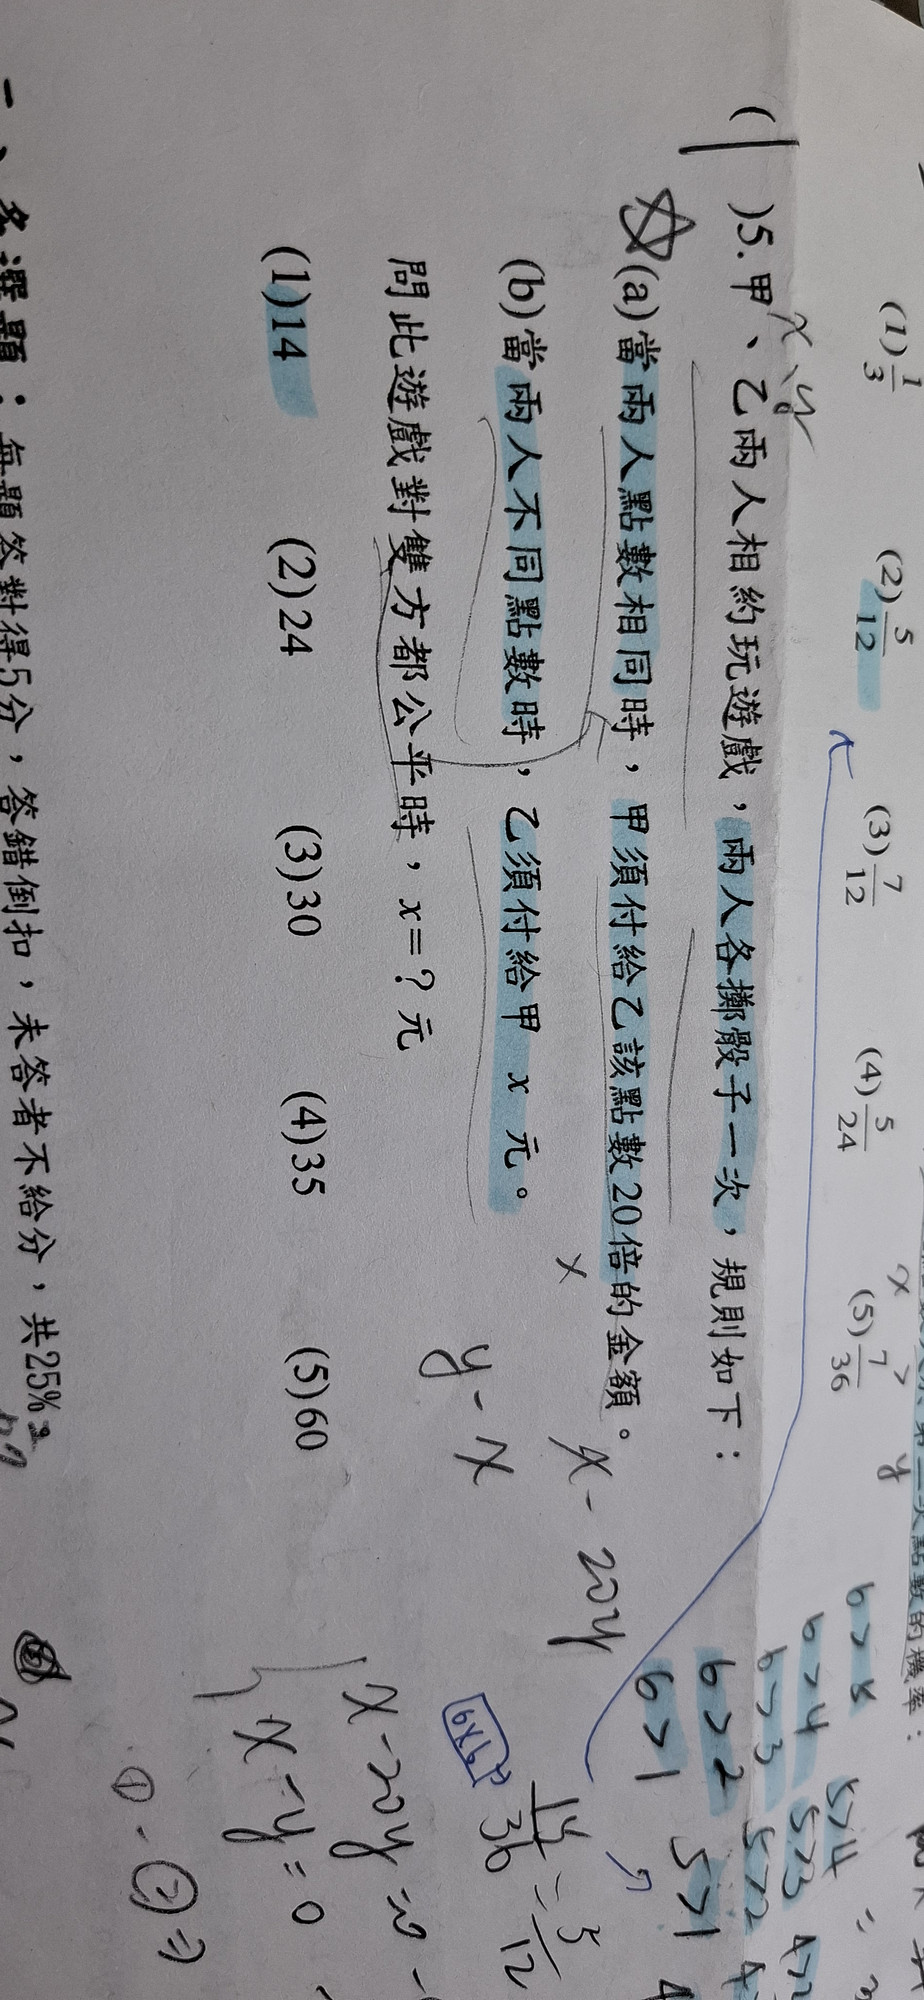 (1)1/3 (2)5/12 (3)7/12 (4)5/24 (5)7/36
x > y
x、y
(1)5.甲、乙兩人相約玩遊戲，兩人各擲骰子一次，規則如下：
(a)當兩人點數相同時，甲須付給乙該點數20倍的金額。
(b)當兩人不同點數時，乙須付給甲 x 元。
問此遊戲對雙方都公平時，x=？元
(1)14 (2)24 (3)30 (4)35 (5)60
x - 20y
y - x
6>5 5>4
6>4 5>3
6>3 5>2
6>2 5>1
6>1
6×6
15/36 = 5/12
x-20y=
x-y=0
①-②⇒
、多選題：每題答對得5分，答錯倒扣，未答者不給分，共25%